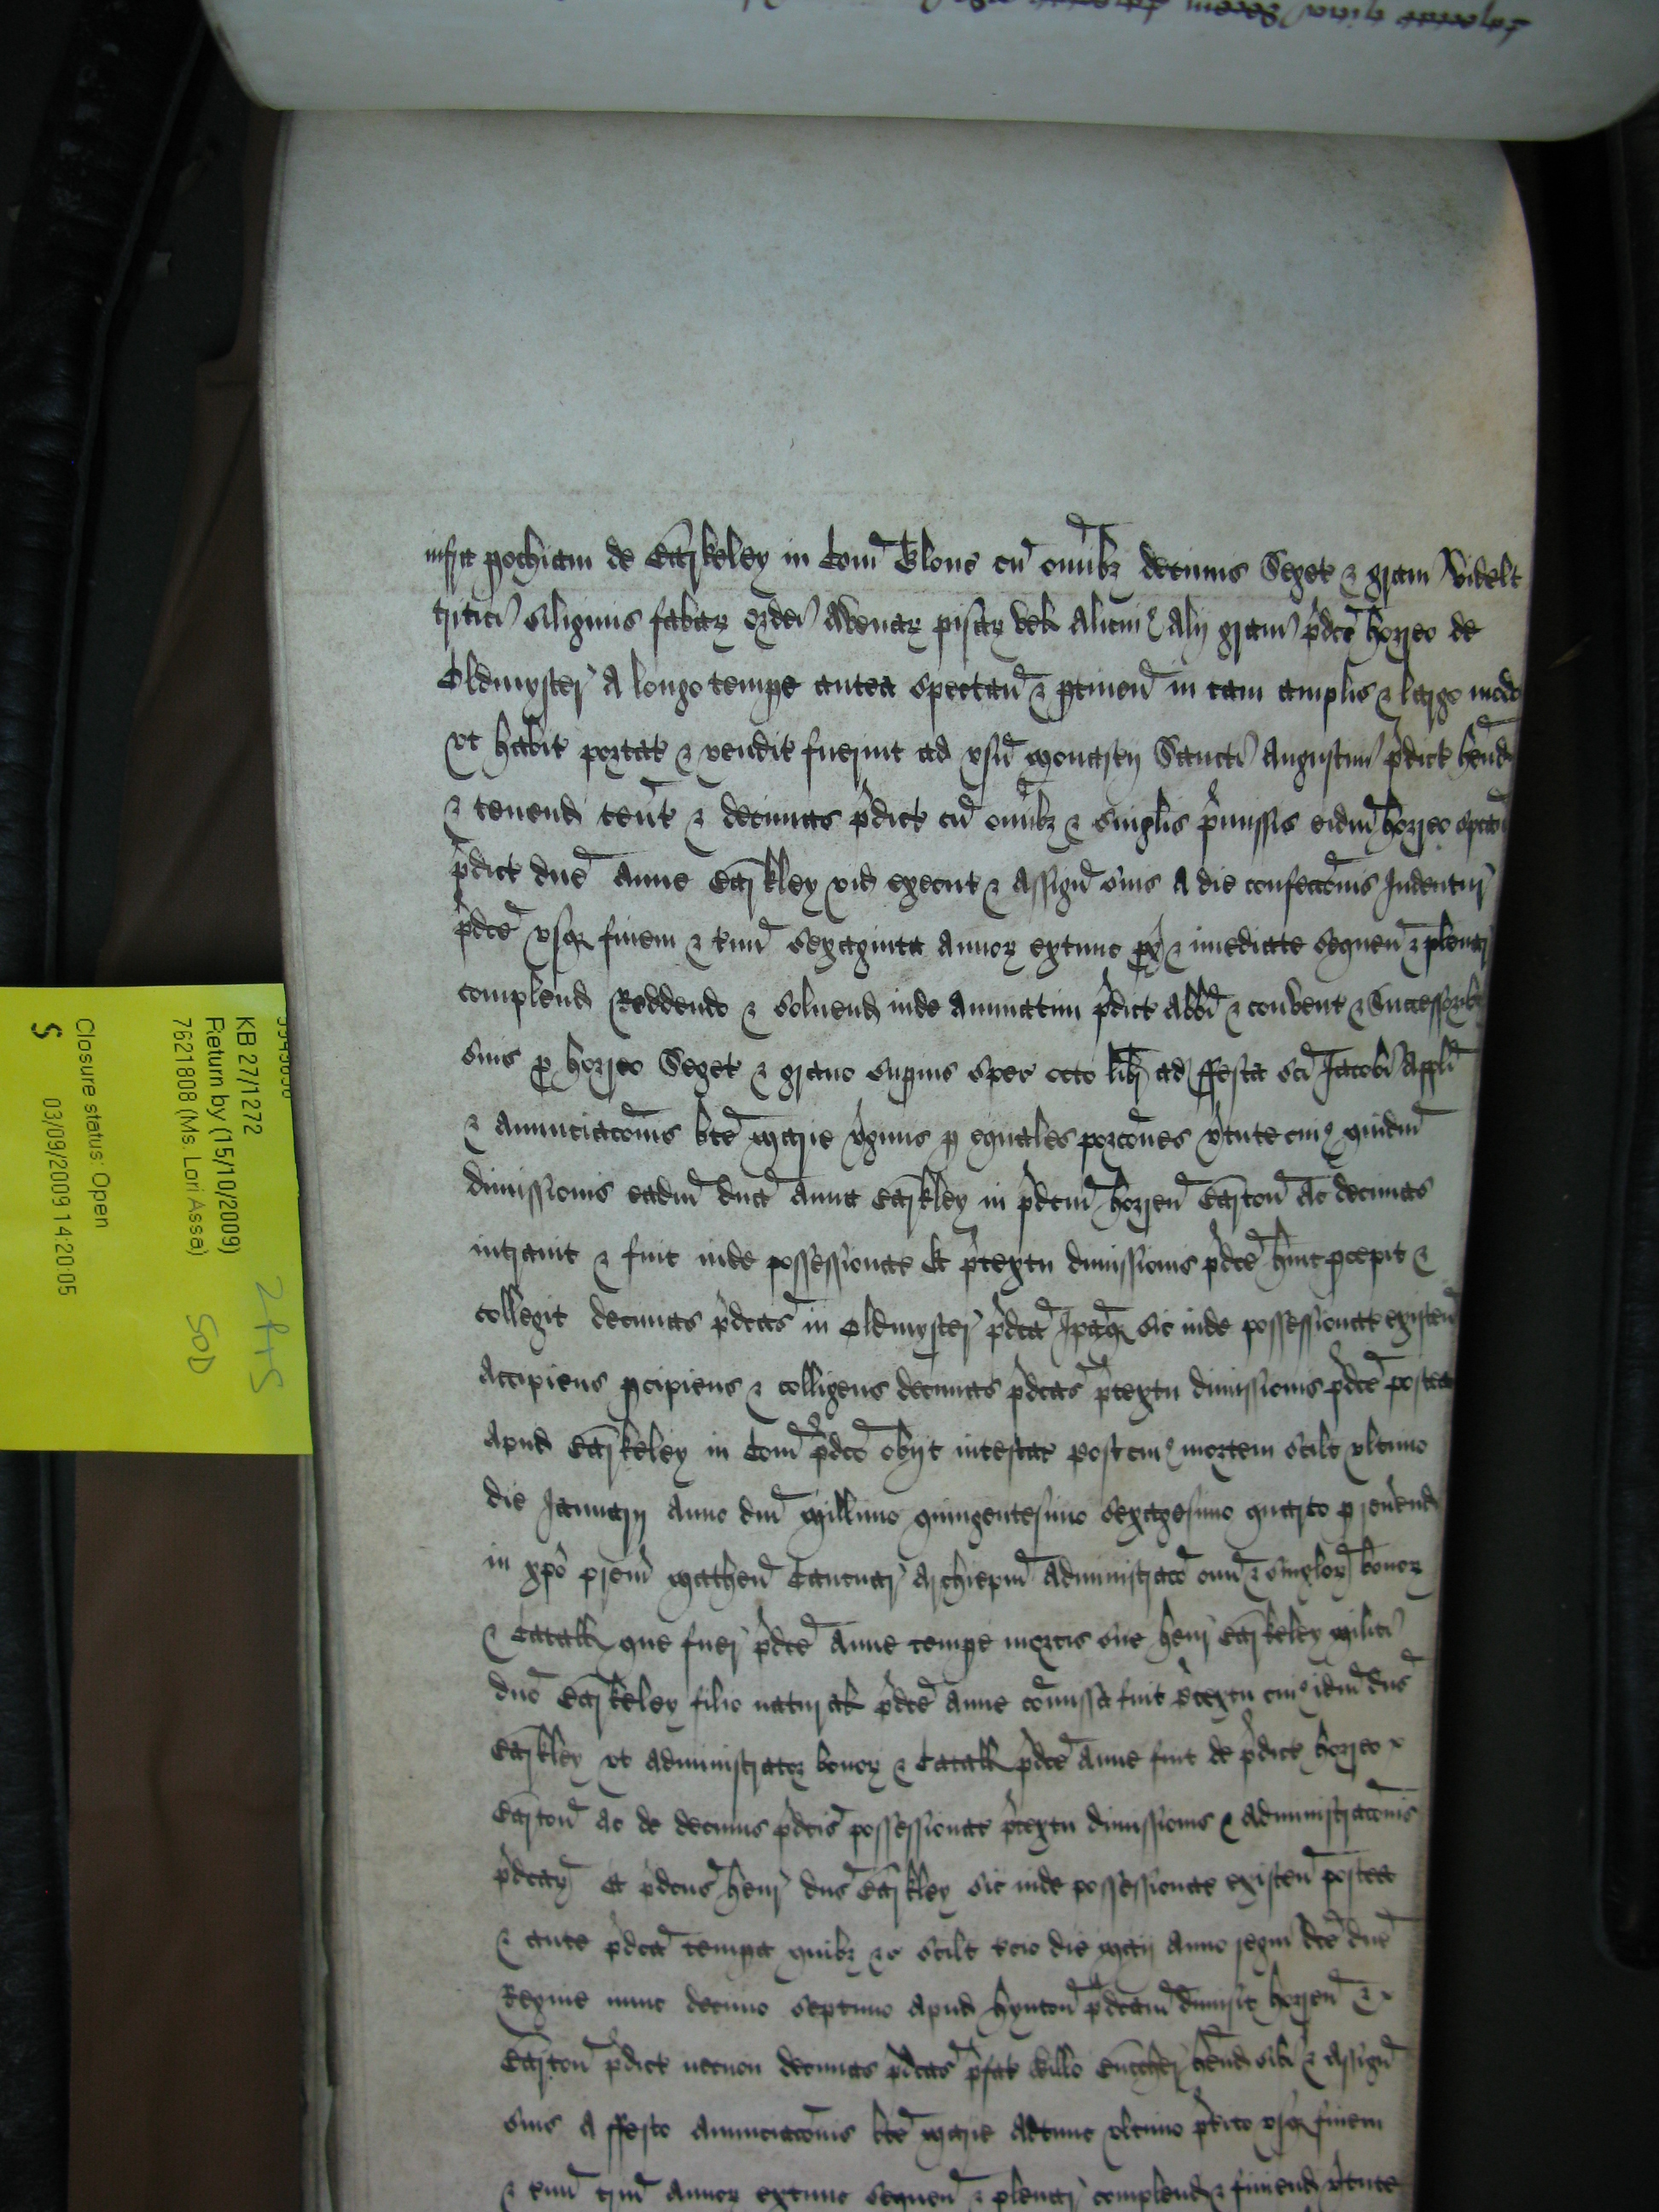 infra pochiam de Barkeley in Com Glouc cu omibz decimis Seget & gran videlt
tritici siliginis fabar ordei Avenar pisar vel alicui alij gran pdce horreo de
Oldmyster A longo tempe antea spectan & ptinen in tam amplis & largo modo
vt habit portat & vendit fuerint ad vsu monastij Sancti Augustini pdict hend
& tenend tent & decimas pdict cu omibz & singlis pmissis eidm horreo spectan
pdict dne Anne Barkley vid execut & Assign suis A die confeccois Indentur
pdce vsqz finem & tmi sexaginta Annor extunc px & imediate sequen & plenar
complend Reddendo & soluend inde Annuatim pdict Abbi & conbent & Successoribz
suis p horreo Seget & grano supius spec octo lib ad ffesta sci Jacobi Appli
& Annuciacois bte marie virginis p equales porcoes vtute cui quidm
dimissionis eadm dna Anna Barkley in pdcm horreu Barton Ac decimas
intrauit & fuit inde possessionat Et ptextu dimissionis pdce huit pcepit &
collegit decimas pdcas in Oldmyster pdca Ipaqz sic inde possessionat existen
Accipiens pcipiens & colligens decimas pdcas ptextu dimissionis pdce postea
Apud Barkeley in Com pdco obijt intestat post cui mortem scilt vltimo
die Januarij Anno dni millimo quingentesimo sexagesimo quarto p reuend
in xpo prem matheu Cantuar Archiepm Administraco omi & singlor bonor
& Catall que fuer pdce Anne tempe mortis sue henr Barkeley militi
dno Barkeley filio naturali pdce Anne comissa fuit ptextu cui idm dns
Barkley vt Administrator bonor & Catall pdce Anne fuit de pdict horreo
Barton Ac de decimis pdcis possessionat ptextu dimissionis & Administracois
pdcar Et pdcus henr dns Barkley sic inde possessionat existen postea
& ante pdca tempa quibz &c scilt tcio die maij Anno regni dce dne
Regine nunc decimo septimo Apud hynton pdcam dimisit horreu &
Barton pdict necnon decimas pdcas pfat Willo hend sibi & Assign
suis A ffesto Annuciacois bte marie Adtunc vltimo ptito vsqz finem
& tmi triu Annor extunc sequen & plenar complend & finiend vtute
KB 27/1272
Return by (15/10/2009)
7621808 (Ms. Lori Assa)
Closure status: Open
S
03/09/2009 14:20:05
SOD